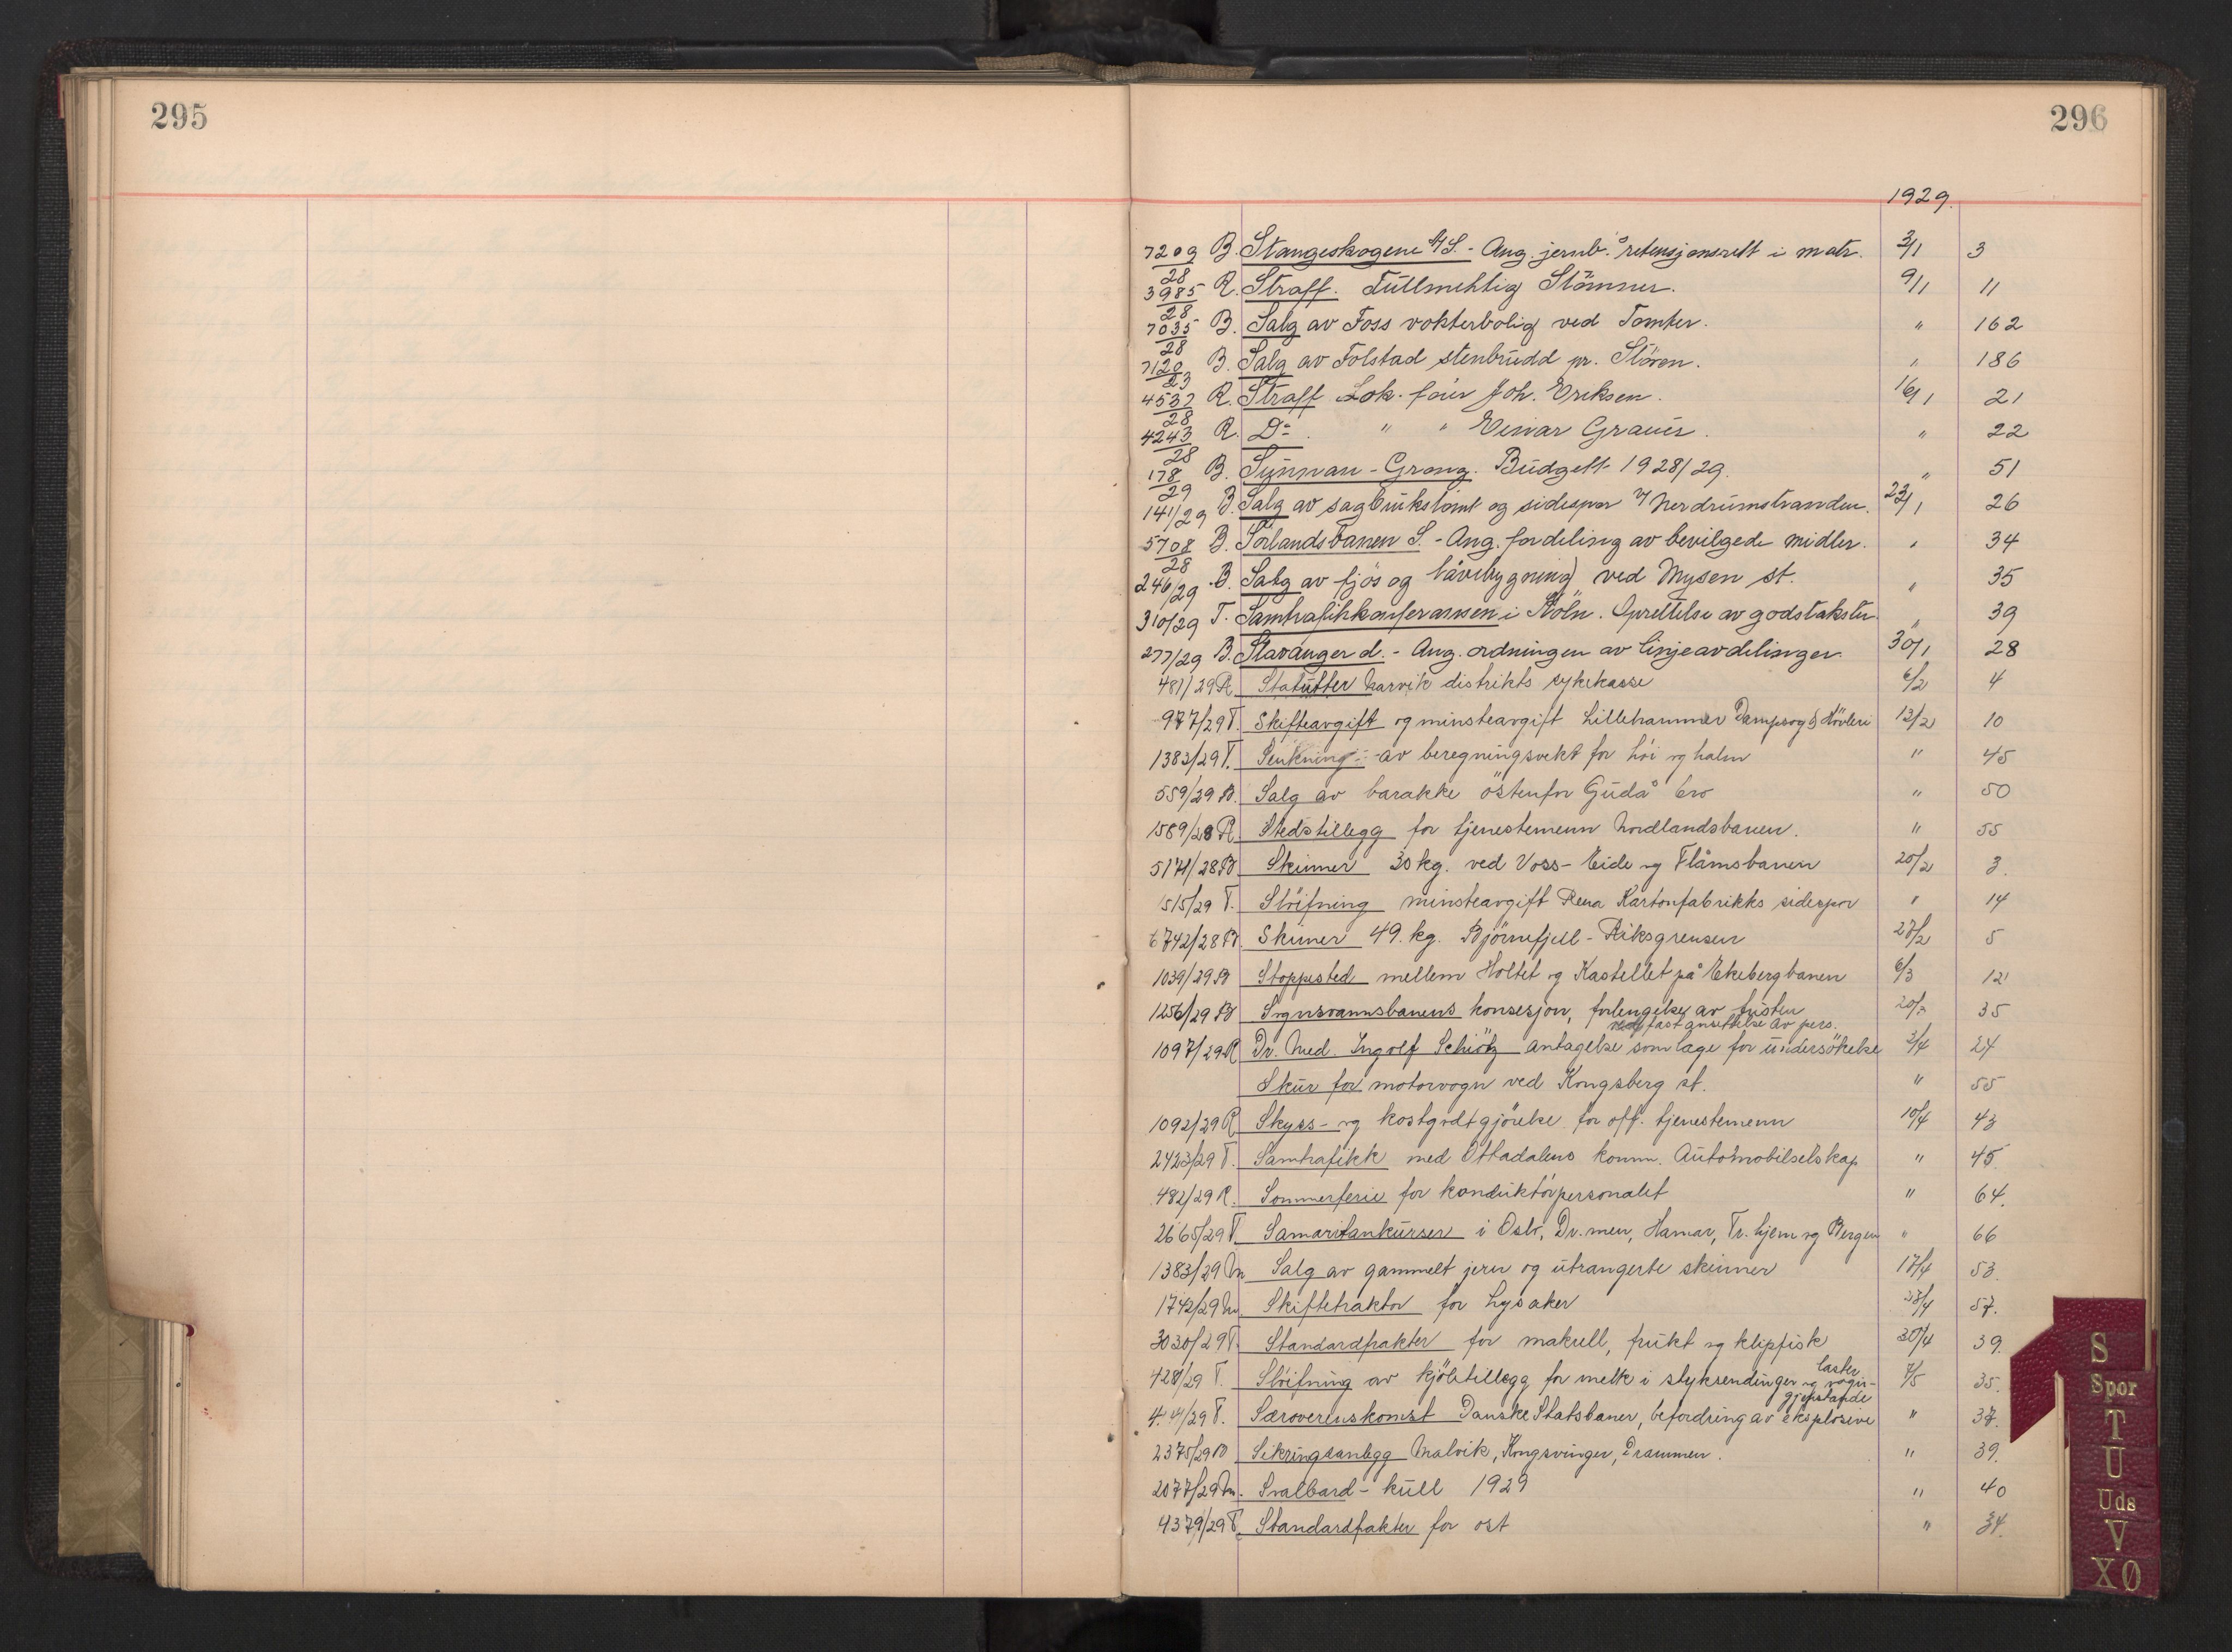 295
296
1929.
7209/28 B. Stangeskogene A/S. - Ang. jernb.s retensjonsrett i matr. 2/1 3
3985/28 R. Straff. Fullmektig Stömner. 9/1 11
7035/28 B. Salg av Foss vokterbolig ved Tomter. " 162
7120/23 B. Salg av Folstad stenbrudd pr. Stören. " 186
4532/28 R. Straff Lok. före Joh. Eriksen. 16/1 21
4243/28 R. Do. " " Einar Grauer. " 22
178/29 B. Sunnan - Grong. Budgett 1928/29. " 51
141/29 B. Salg av sagbrukstomt og sidespor v/ Nerdrumstranden. 23/1 26
5708/28 B. Sörlandsbanen S. - Ang. fordeling av bevilgede midler. " 34
246/29 B. Salg av fjös og låvebygning ved Mysen st. " 35
310/29 T. Samtrafikkonferansen i Köln. Oprettelse av godstakster " 39
277/29 B. Stavanger d. - Ang. ordningen av linjeavdelinger. 30/1 28
481/29 R Statutter Narvik distrikts sykekasse 6/2 4
977/29 T. Skifteavgift og minsteavgift Lillehammer Dampsag & Hövleri 13/2 10
1383/29 T. Senkning - av beregningsvekt for höi og halm " 45
559/29 B. Salg av barakke östenfor Gudå bro " 50
1589/28 R Stedstillegg for tjenestemenn Nordlandsbanen. " 55
5171/28 B Skinner 30 kg. ved Voss - Eide og Flåmsbanen 20/2 3.
515/29 T. Slöifning minsteavgift Rena Kartonfabrikks sidespor " 14
6742/28 B Skinner 49. kg. Björnefjell - Riksgrensen 27/2 5
1039/29 B Stoppested mellem Holtet og Kastellet på Ekebergbanen 6/3 12
1256/29 B Sognsvannsbanens konsesjon, forlengelse av fristen 20/3 35
ved fast ansettelse av pers.
1097/29 R Dr. Med. Ingolf Schiötz antagelse som læge for undersökelse 3/4 24
Skur for motorvogn ved Kongsberg st. " 55
1092/29 R Skyss- og kostgodtgjörelse for off. tjenestemenn 10/4 43
2423/29 T. Samtrafikk med Ottadalens komm. Automobilselskap " 45.
482/29 R. Sommerferie for konduktörpersonalet " 64.
2665/29 T. Samaritankurser i Oslo, Dr.men, Hamar, Tr.hjem og Bergen " 66
1383/29 M Salg av gammelt jern og utrangerte skinner 17/4 53.
1742/29 M. Skiftetraktor for Lysaker 23/4 57.
3030/29 T. Standardfrakter for makrell, frukt og klipfisk 30/4 39.
laster
428/29 T. Slöifning av kjöletillegg for melk i styksendinger og vogn- 7/5 35.
gjenstande
4.4/29 T. Særoverenskomst Danske Statsbaner, befordring av eksplosive " 37.
2375/29 B Sikringsanlegg Malvik, Kongsvinger, Drammen. " 39.
2077/29 M. Svalbard - kull 1929 " 40
4379/29 T. Standardfrakter for ost " 34.
S
Spor
T
U
Uds
V
XØ